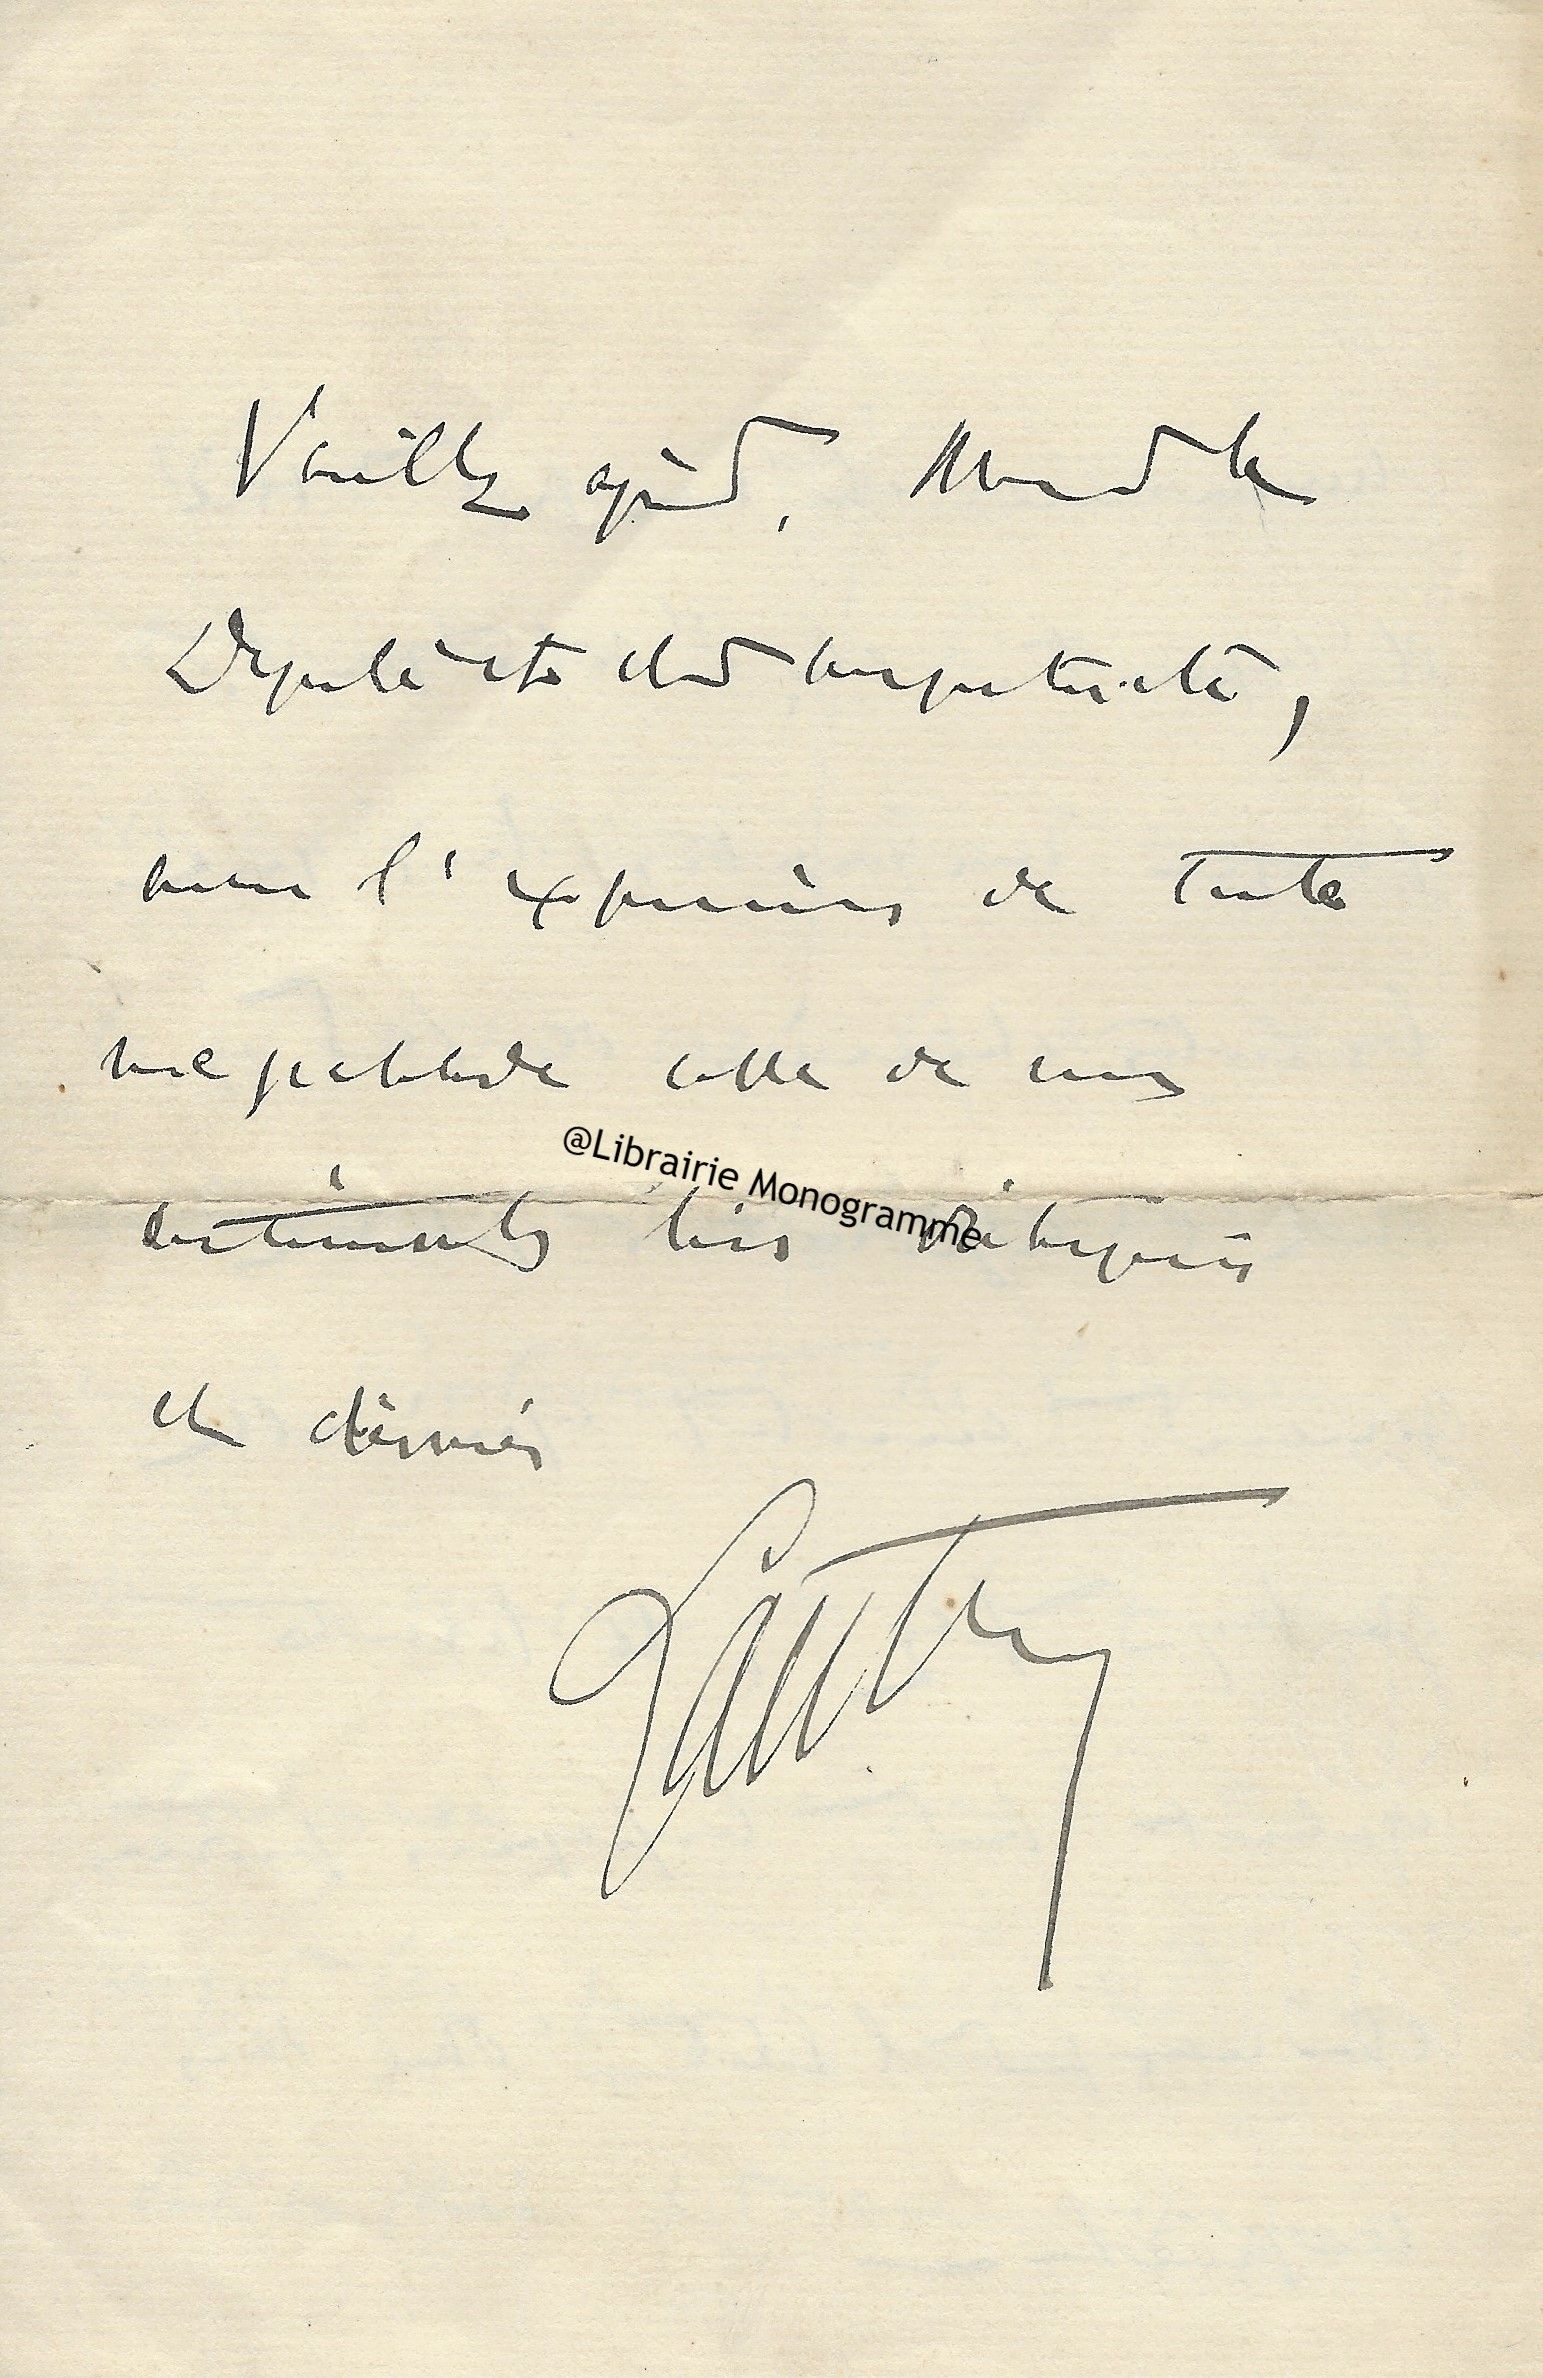 Veuillez agréer, Monsieur le
Député et cher compatriote,
avec l'expression de toute
ma gratitude celle de mes
sentiments très distingués
et dévoués
@Librairie Monogramme
Lautrey